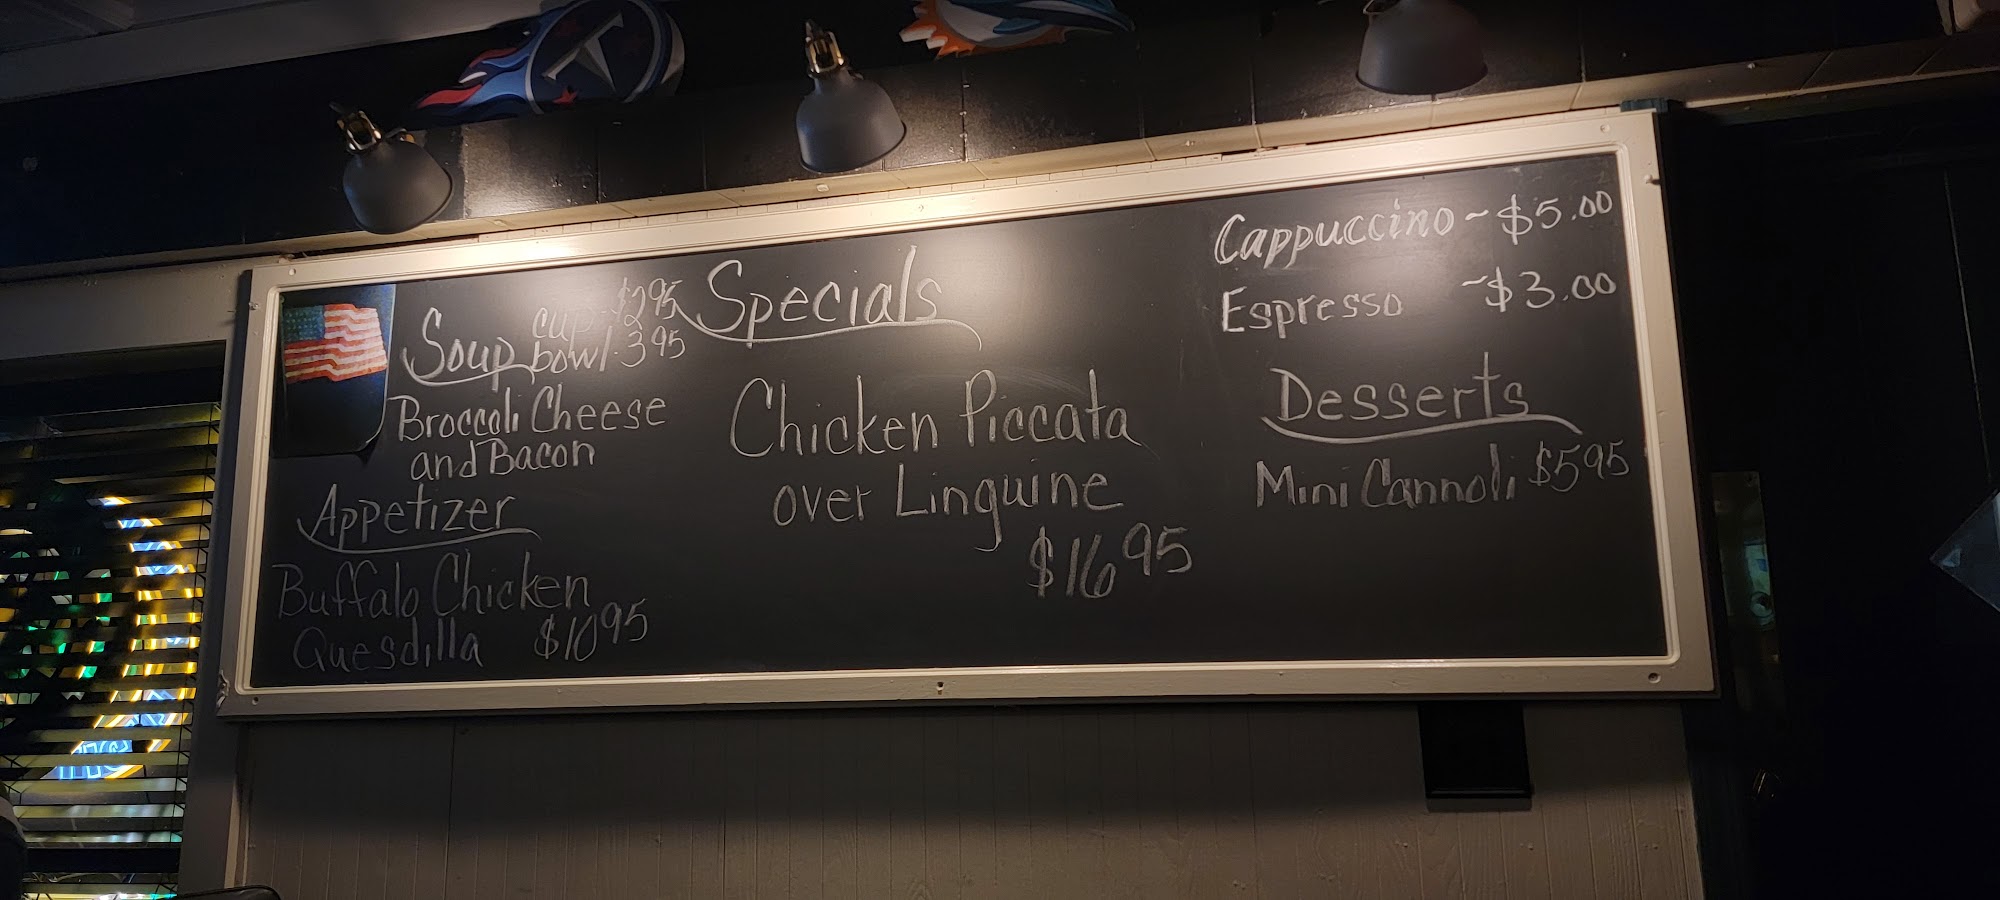 Soup cup $2.95
bowl 3.95
Broccoli Cheese
and Bacon
Appetizer
Buffalo Chicken
Quesdilla $10.95
Specials
Chicken Piccata
over Linguine
$16.95
Cappuccino ~ $5.00
Espresso ~ $3.00
Desserts
Mini Cannoli $5.95